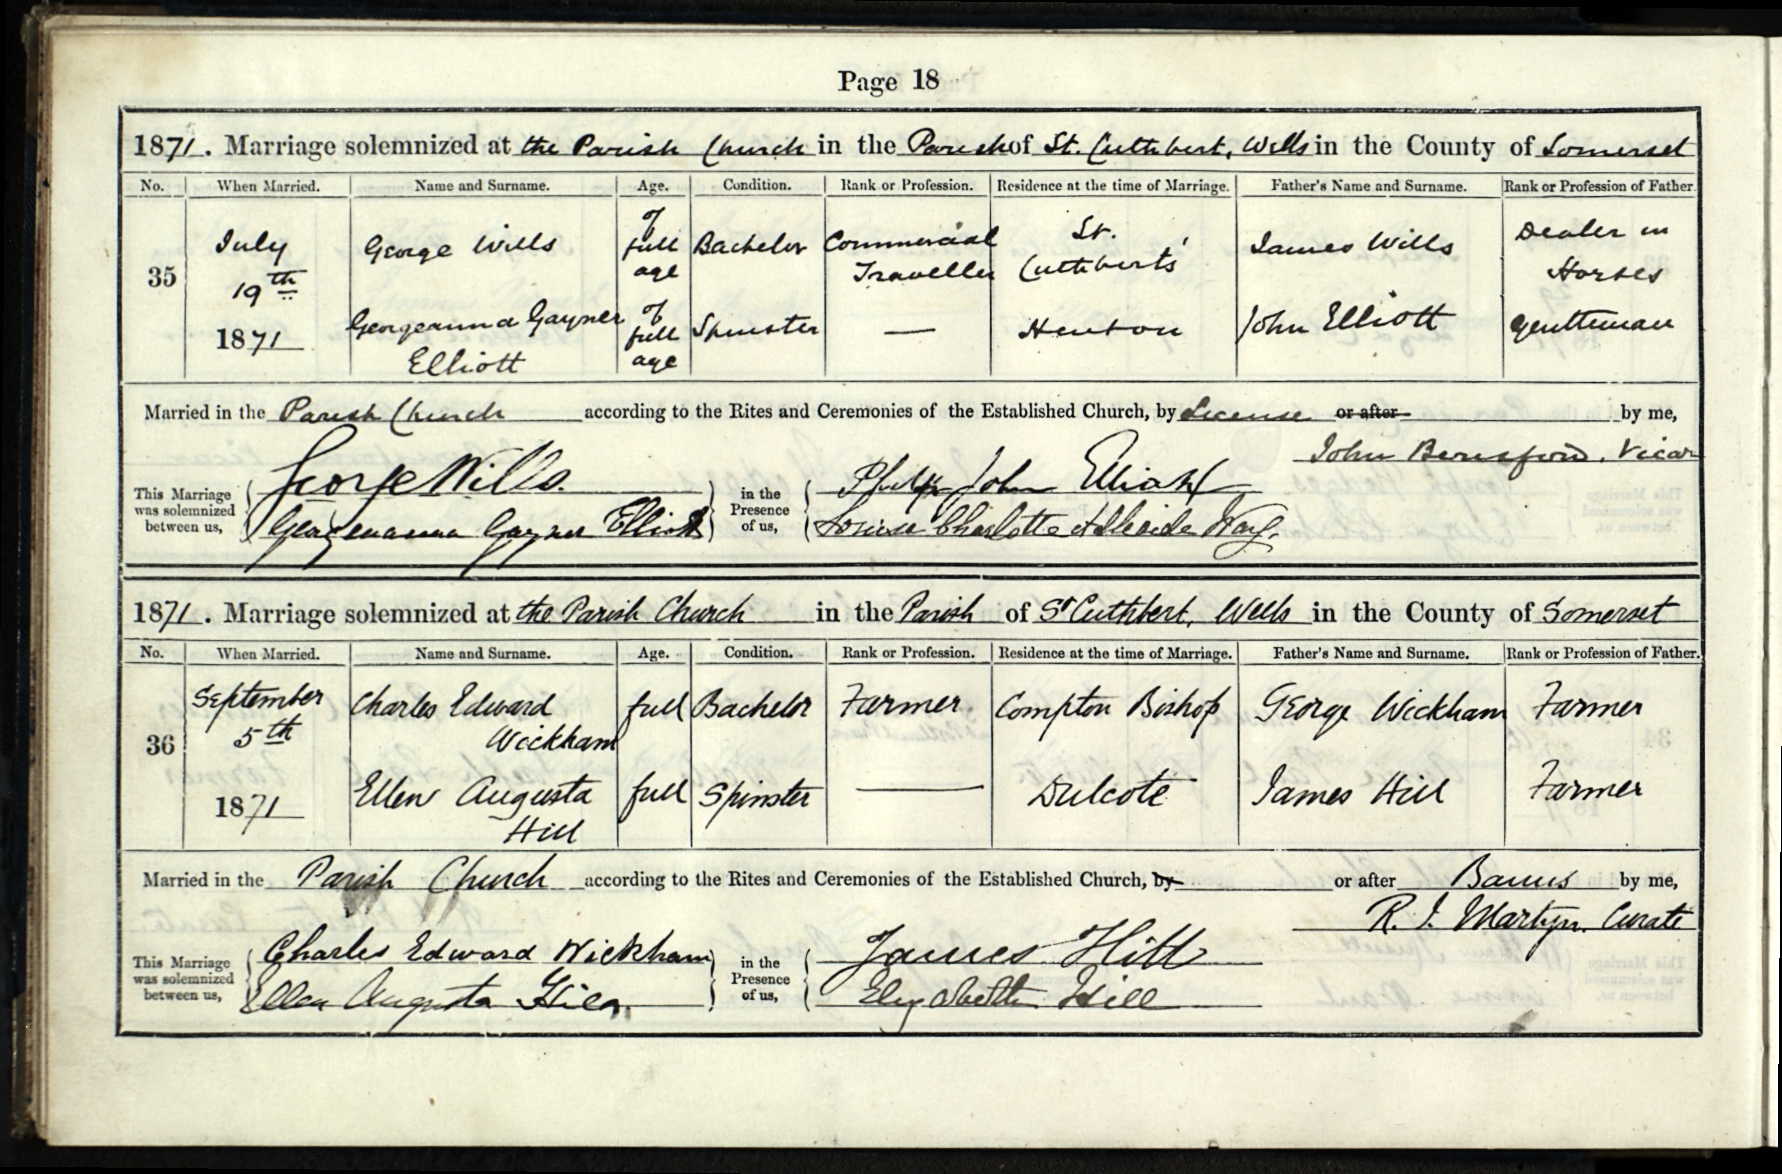 Page 18
1871. Marriage solemnized at the Parish Church in the Parish of St. Cuthbert, Wells in the County of Somerset
No. When Married. Name and Surname. Age. Condition. Rank or Profession. Residence at the time of Marriage. Father's Name and Surname. Rank or Profession of Father.
35 July 19th 1871 George Wills of full age Bachelor Commercial Traveller St. Cuthbert's James Wills Dealer in Horses
Georgeanna Gayner Elliott of full age Spinster — Henton John Elliott gentleman
Married in the Parish Church according to the Rites and Ceremonies of the Established Church, by License or after by me,
John Beresford. Vicar
This Marriage was solemnized between us, George Wills. Georgeanna Gayner Elliott in the Presence of us, Philip John Elliott Louisa Charlotte Adelaide Way.
1871. Marriage solemnized at the Parish Church in the Parish of St Cuthbert, Wells in the County of Somerset
No. When Married. Name and Surname. Age. Condition. Rank or Profession. Residence at the time of Marriage. Father's Name and Surname. Rank or Profession of Father.
36 September 5th 1871 Charles Edward Wickham full Bachelor Farmer Compton Bishop George Wickham Farmer
Ellen Augusta Hill full Spinster — Dulcote James Hill Farmer
Married in the Parish Church according to the Rites and Ceremonies of the Established Church, by or after Banns by me,
R. I. Martyn. Curate
This Marriage was solemnized between us, Charles Edward Wickham Ellen Augusta Hill in the Presence of us, James Hill Elizabeth Hill